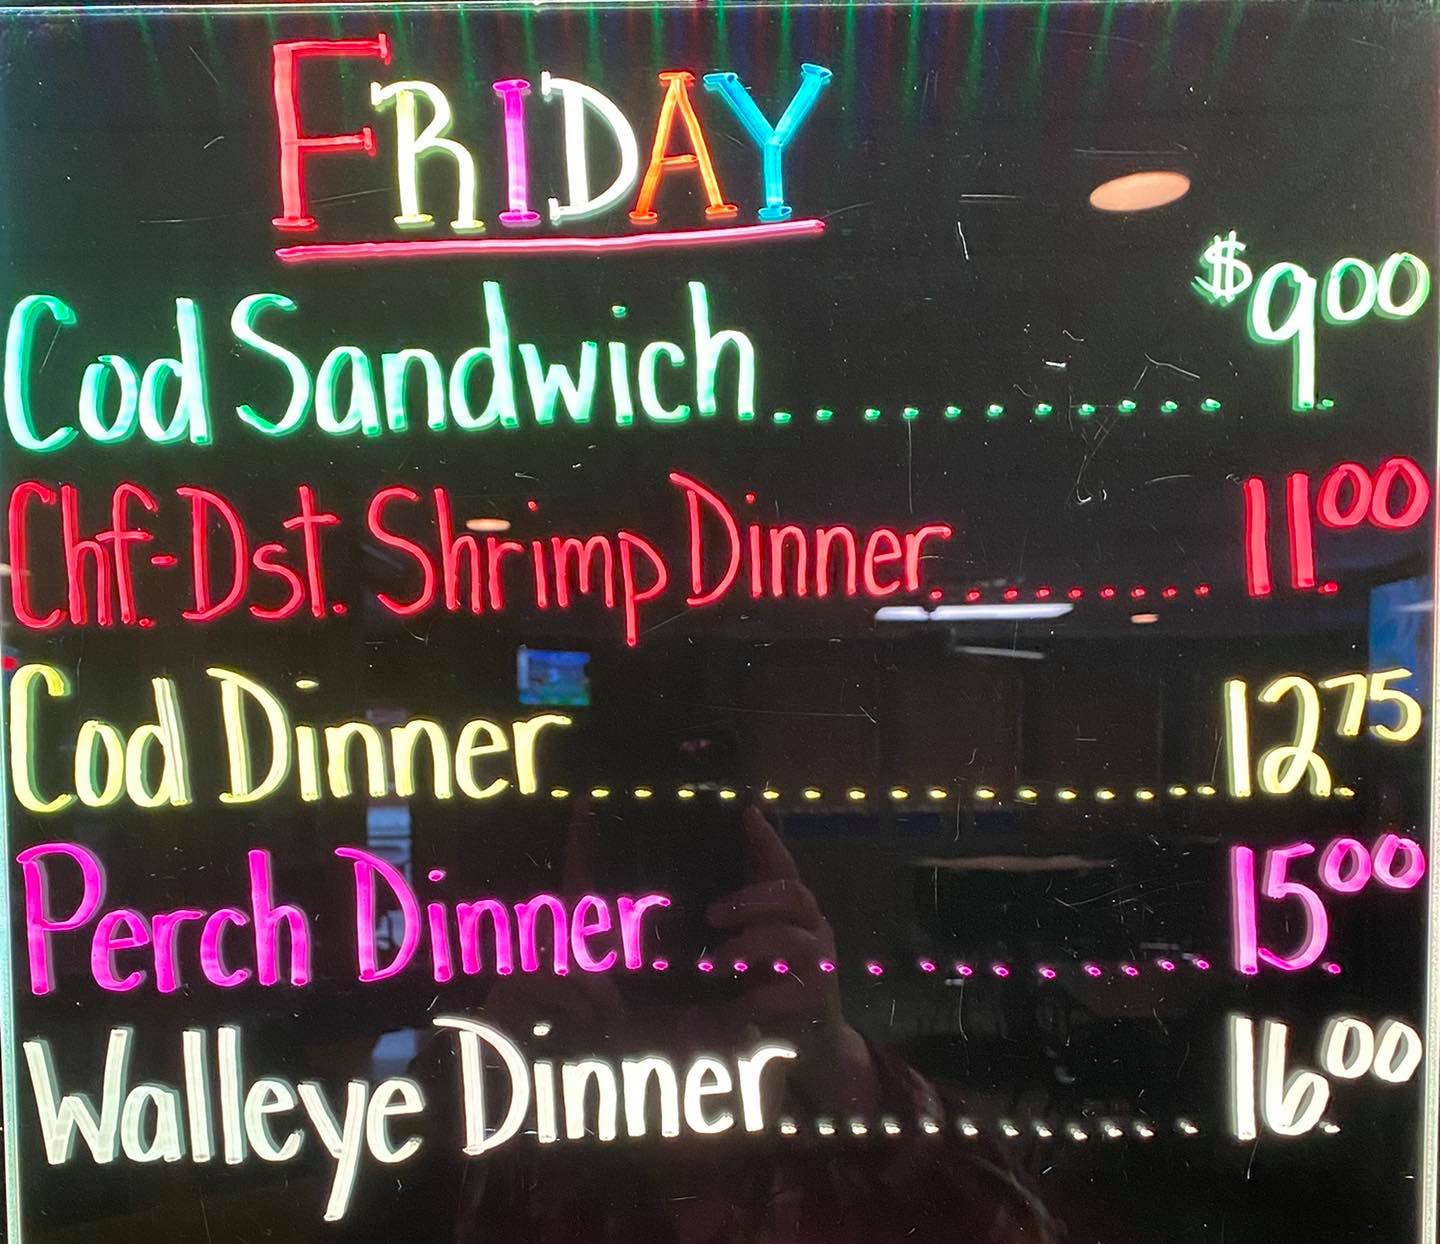 FRIDAY
Cod Sandwich........... $9.00
Chf.-Dst. Shrimp Dinner........ 11.00
Cod Dinner................ 12.75
Perch Dinner............. 15.00
Walleye Dinner........... 16.00